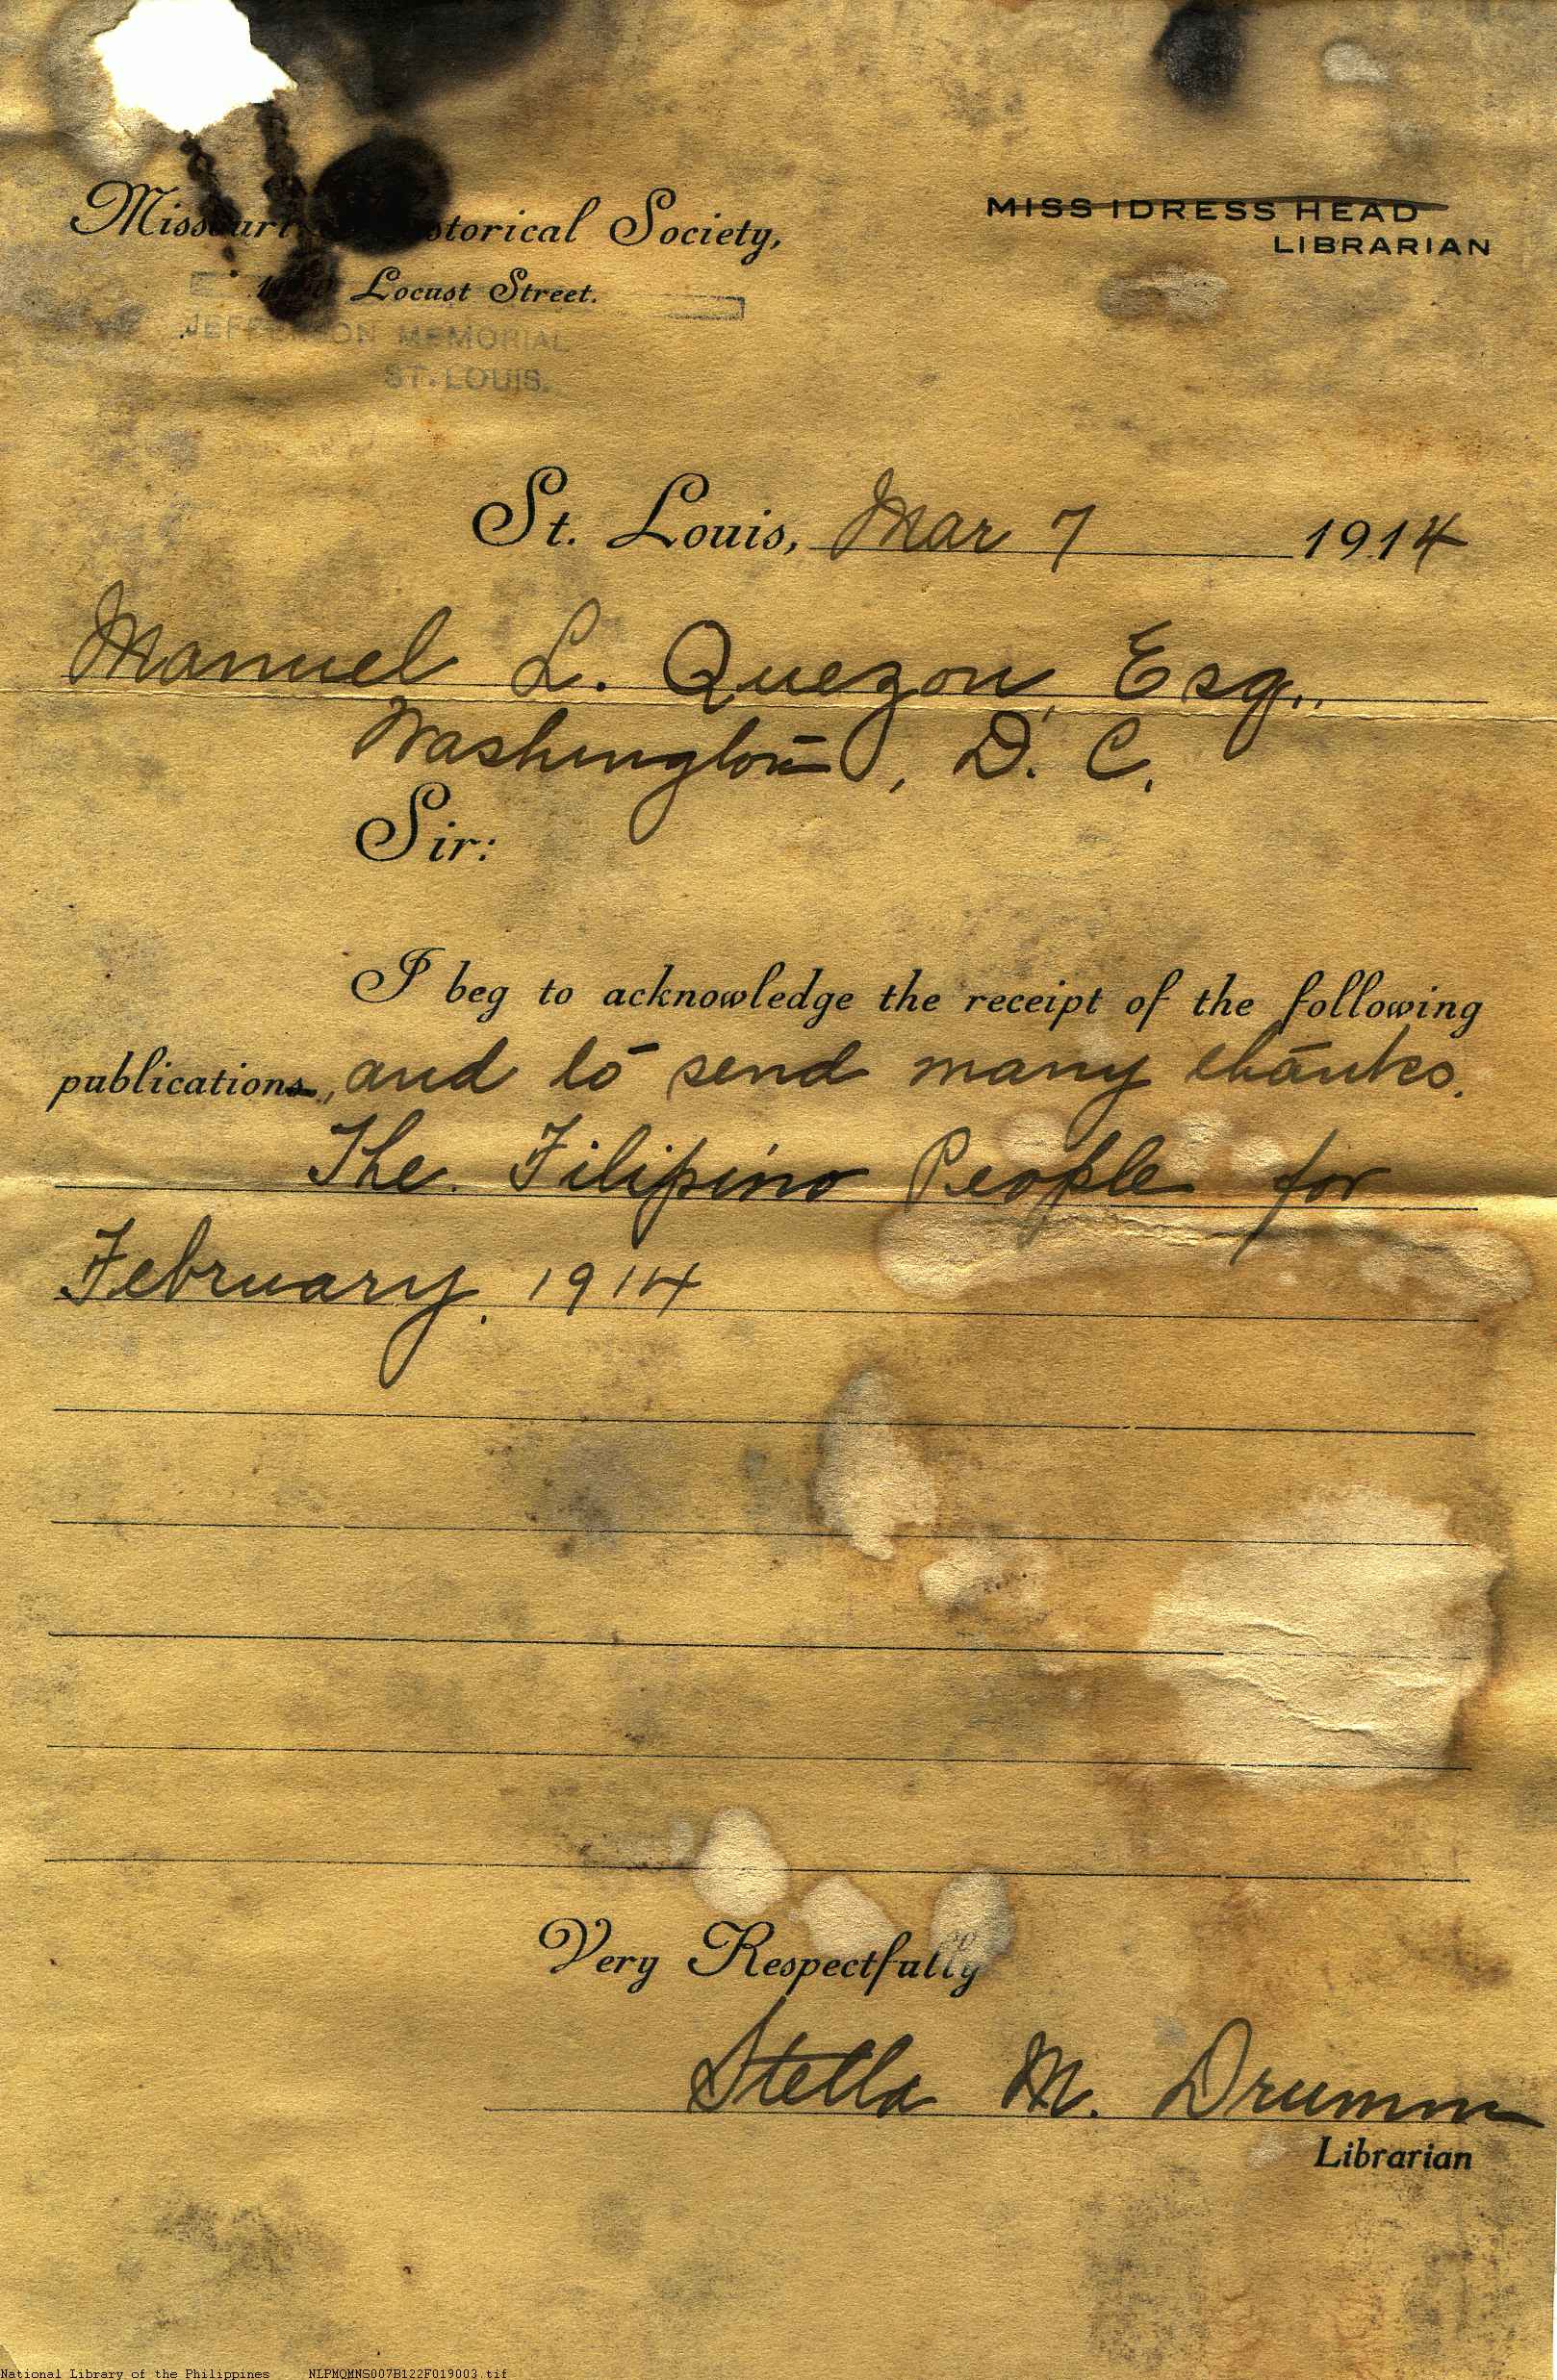 Missouri Historical Society,
MISS IDRESS HEAD
LIBRARIAN
Locust Street.
JEFFERSON MEMORIAL
ST. LOUIS.
St. Louis, Mar 7 1914
Manuel L. Quezon, Esq.,
Washington, D. C.
Sir:
I beg to acknowledge the receipt of the following
publications, and to send many thanks.
The Filipino People for
February, 1914
Very Respectfully
Stella M. Drumm
Librarian
National Library of the Philippines NLPMQMNS007B122F019003.tif